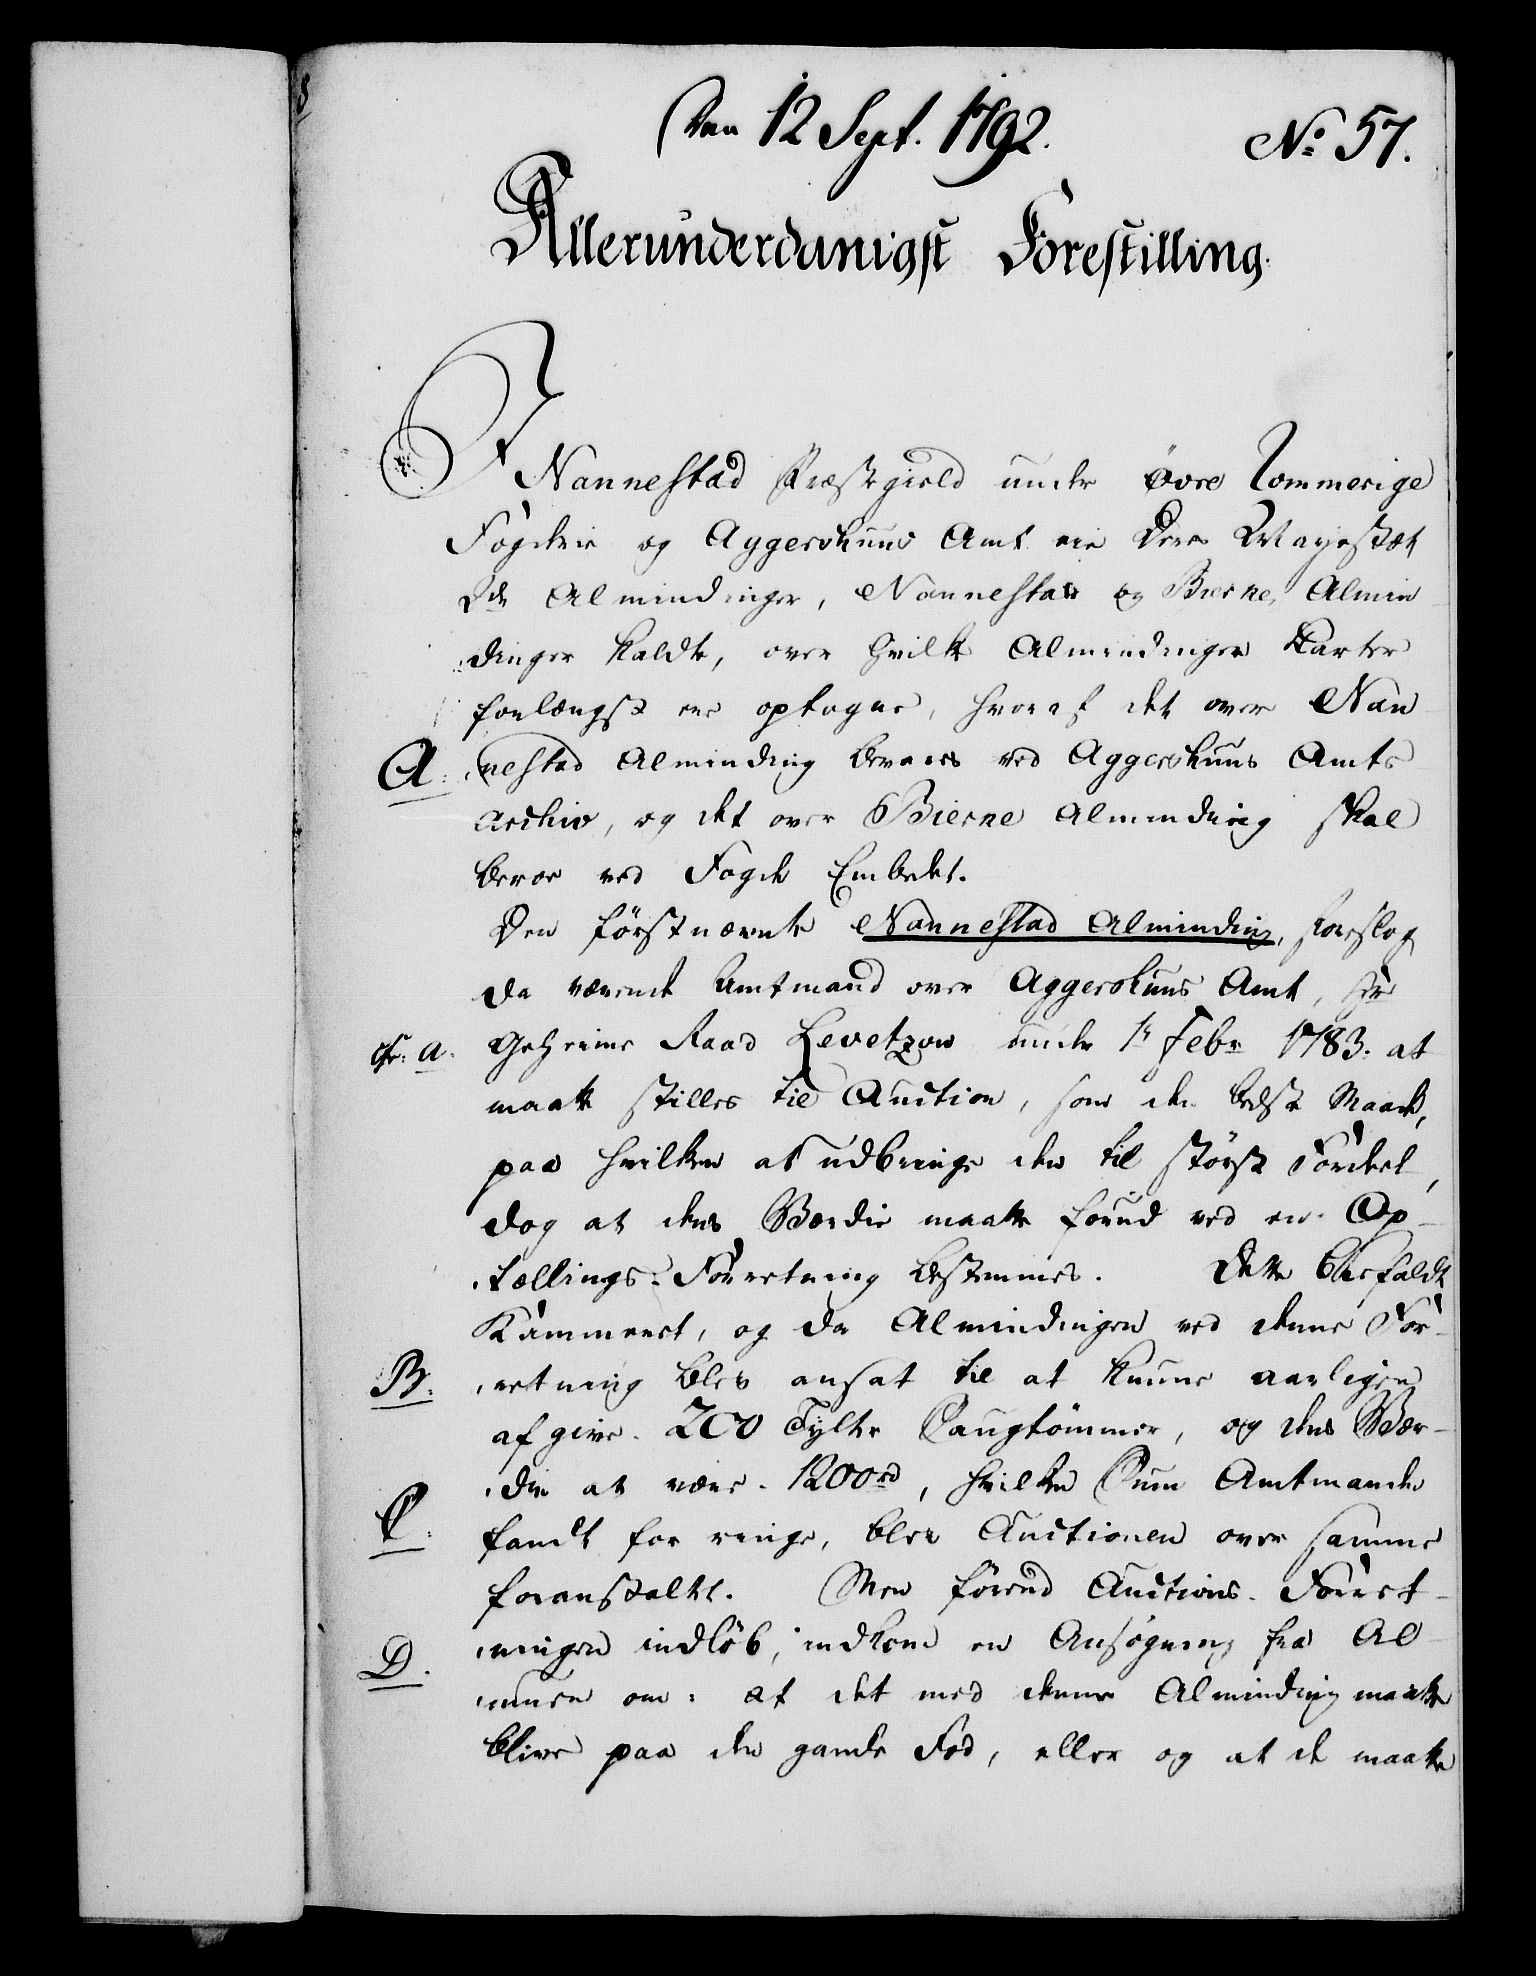 Den 12 Sept. 1792.
No 57.
Allerunderdanigst Forestilling.
I Nannestad Præstegield under Övre Rommerige
Fogderie og Aggershuus Amt eie Deres Majestæt
De Almindinger, Nannestad og Bierke Almin-
dinger kaldte, over hvilke Almindinger Karter
forlængst ere optagne, hvoraf det over Nan-
A. nestad Alminding bevares ved Aggershuus Amts
Archiv, og det over Bierke Alminding skal
beroe ved Foged Embedet.
Den förstnævnte Nannestad Alminding, foreslog
da værende Amtmand over Aggershuus Amt, Hr
cfr. a. Geheime Raad Levetzow under 1r Febr 1783. at
maatte stilles til Auction, som den bedste Maade,
paa hvilken at udbringe den til störste Fordeel,
dog at dens Værdie maatte forud ved en Op-
tællings-Forretning bestemmes. Dette biefaldt
Kammeret, og da Almindingen ved denne For-
B. retning blev ansat til at kunne aarligen
afgive 200 Tylter Saugtömmer, og dens Vær-
die at være 1200rd, hvilken Sum Amtmanden
C. fandt for ringe, blev Auctionen over samme
foranstaltet. Men förend Auctions-Forret-
ningen indlöb, indkom en Ansögning fra Al-
D. muen om: at det med denne Alminding maatte
blive paa den gamle Fod, eller og at de maatte